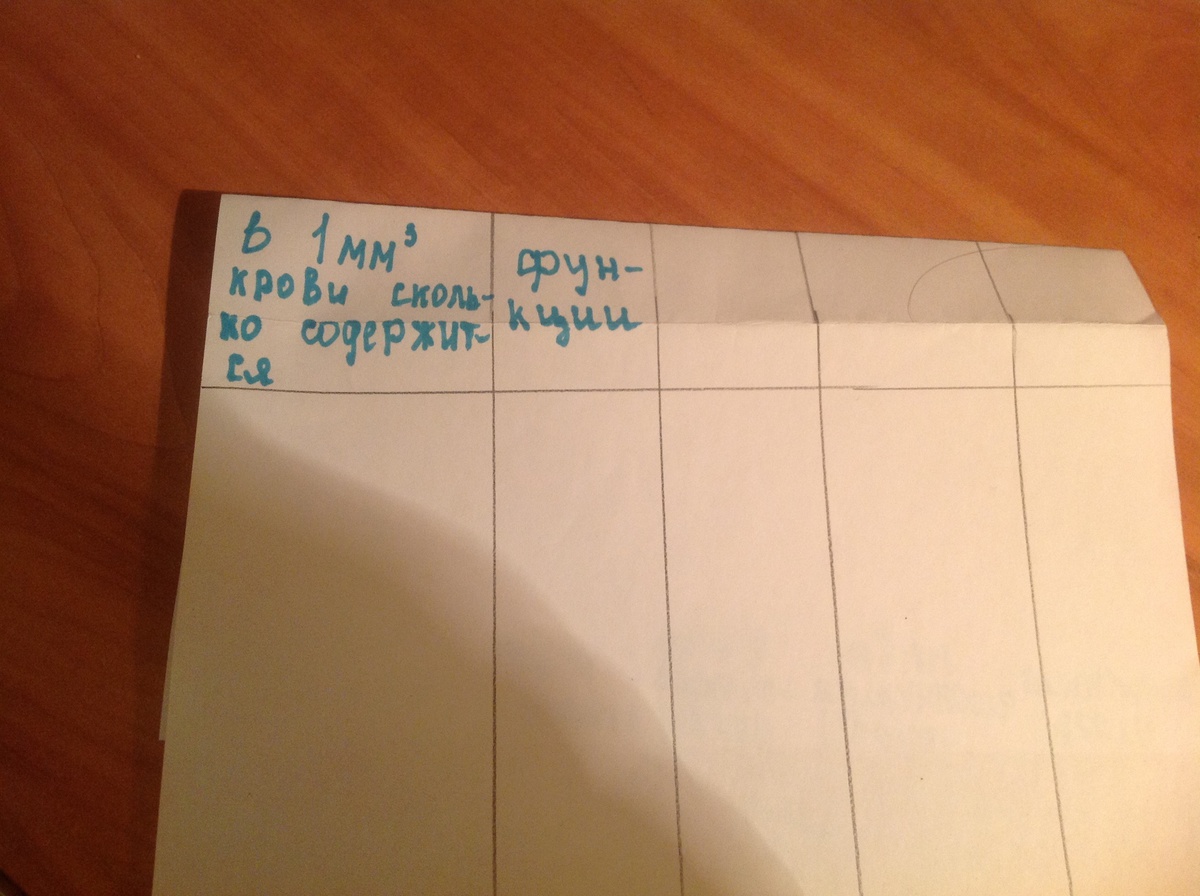 в 1 мм³
крови сколь-
ко содержит-
ся
фун-
кции